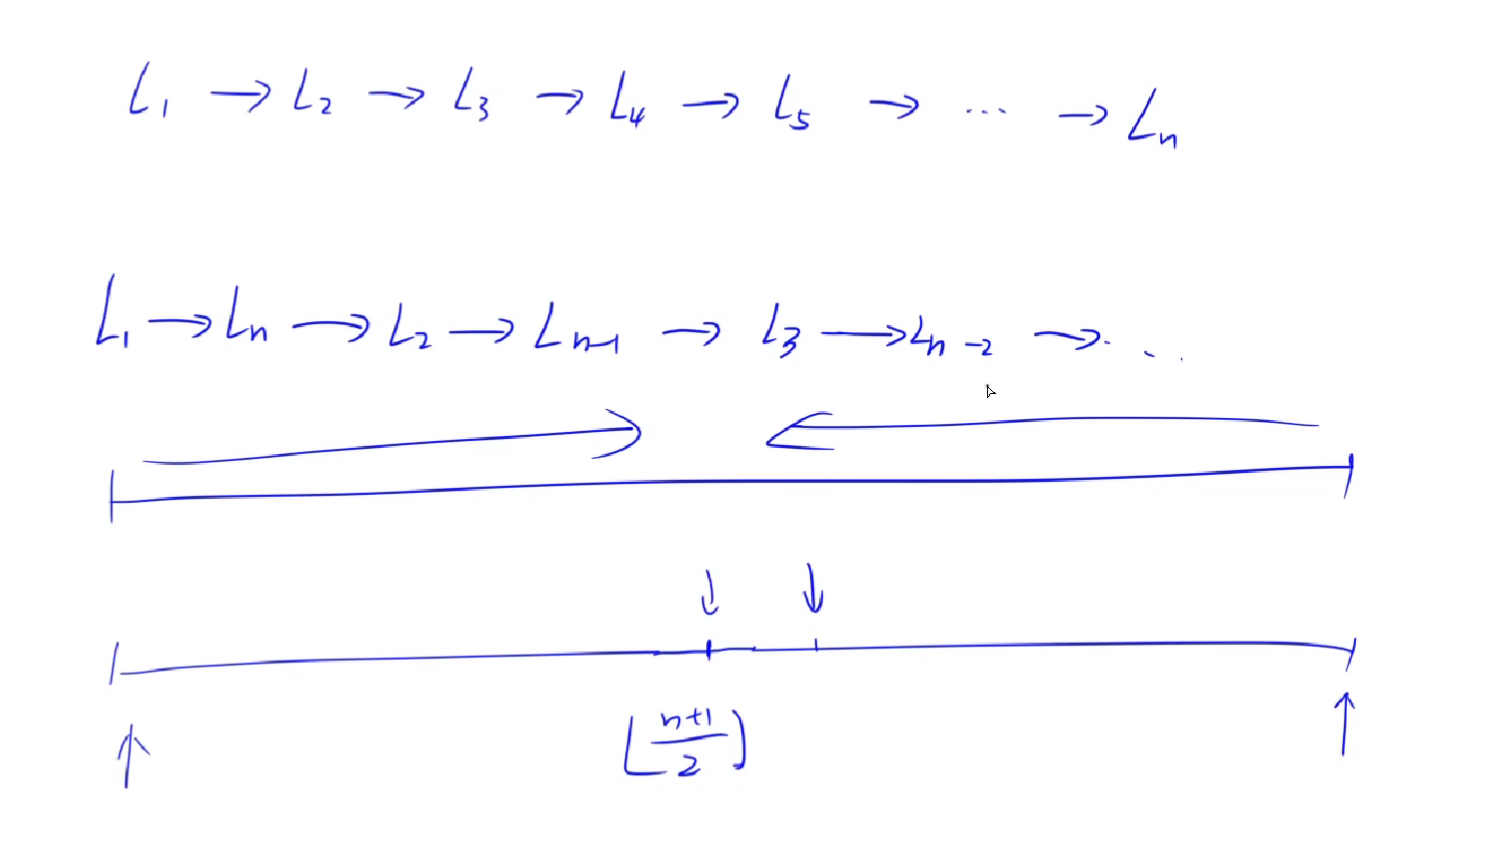 L₁ → L₂ → L₃ → L₄ → L₅ → ... → Lₙ
L₁ → Lₙ → L₂ → Lₙ₋₁ → L₃ → Lₙ₋₂ → ...
⌊(n+1)/2⌋